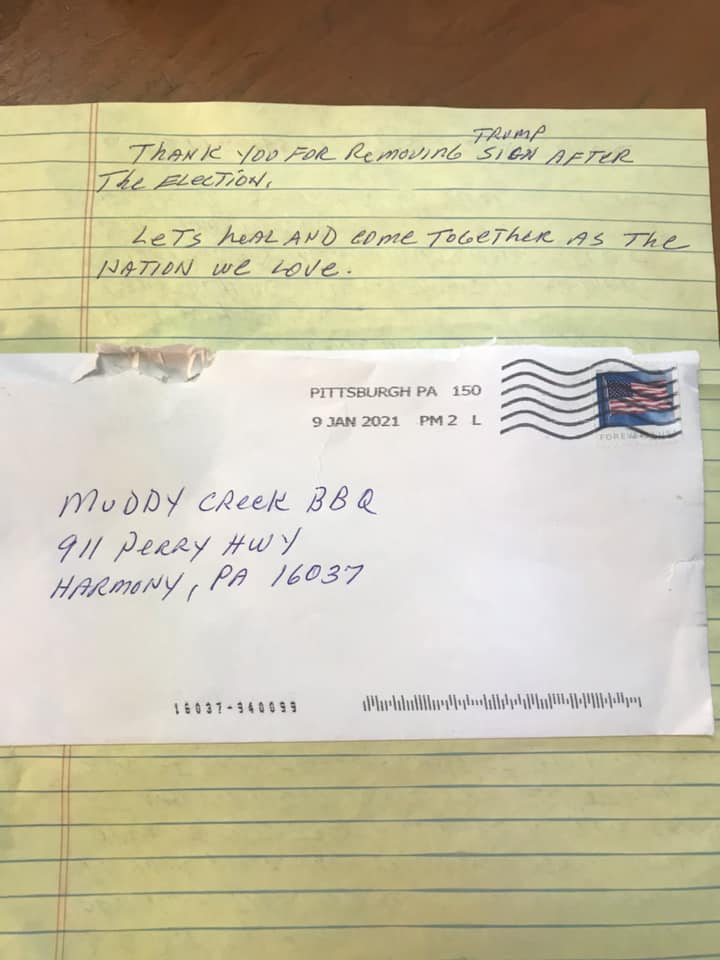 TRUMP
THANK YOU FOR REMOVING SIGN AFTER
THE ELECTION.
LETS HEAL AND COME TOGETHER AS THE
NATION WE LOVE.
PITTSBURGH PA 150
9 JAN 2021 PM 2 L
FOREVER USA
MUDDY CREEK BBQ
911 PERRY HWY
HARMONY, PA 16037
16037-940099